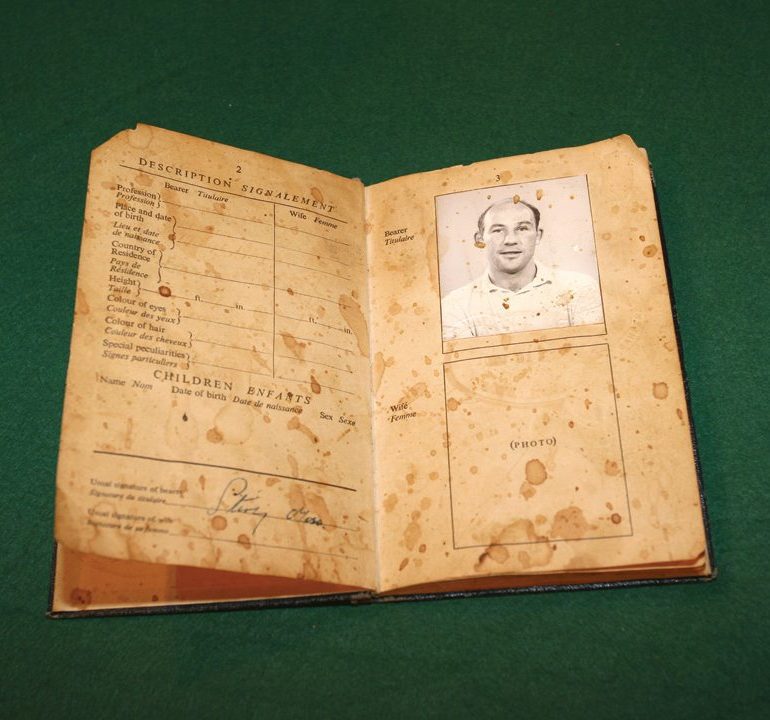 2
DESCRIPTION SIGNALEMENT
Bearer Titulaire
Wife Femme
Profession
Profession
Place and date
of birth
Lieu et date
de naissance
Country of
Residence
Pays de
Résidence
Height
Taille
ft. in.
ft. in.
Colour of eyes
Couleur des yeux
Colour of hair
Couleur des cheveux
Special peculiarities
Signes particuliers
CHILDREN ENFANTS
Name Nom Date of birth Date de naissance Sex Sexe
Usual signature of bearer
Signature du titulaire
Usual signature of wife
Signature de sa femme
3
Bearer
Titulaire
Wife
Femme
(PHOTO)